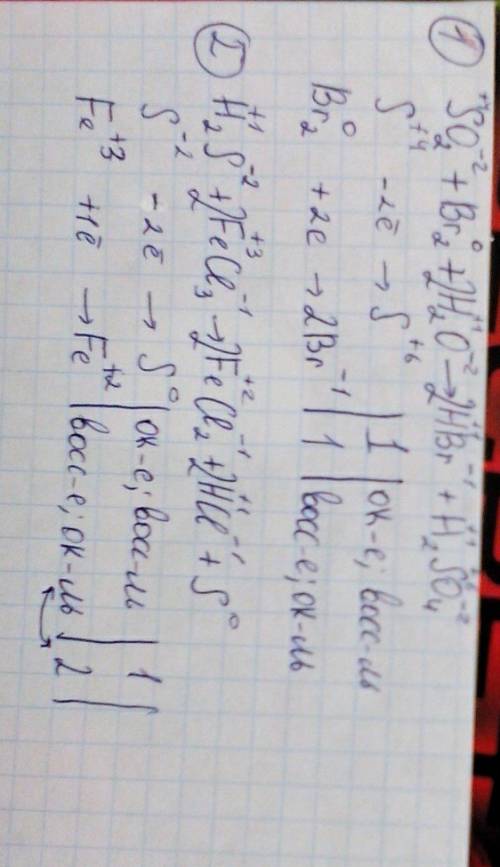 ① S⁺⁴O₂⁻² + Br₂⁰ + 2H₂⁺¹O⁻² → 2H⁺¹Br⁻¹ + H₂⁺¹S⁺⁶O₄⁻²
S⁺⁴ -2ē → S⁺⁶ | 1 | ок-е; восс-ль
Br₂⁰ +2e → 2Br⁻¹ | 1 | восс-е; ок-ль
② H₂⁺¹S⁻² + 2Fe⁺³Cl₃⁻¹ → 2Fe⁺²Cl₂⁻¹ + 2H⁺¹Cl⁻¹ + S⁰
S⁻² -2ē → S⁰ | ок-е; восс-ль | 1 |
Fe⁺³ +1ē → Fe⁺² | восс-е; ок-ль | 2 |